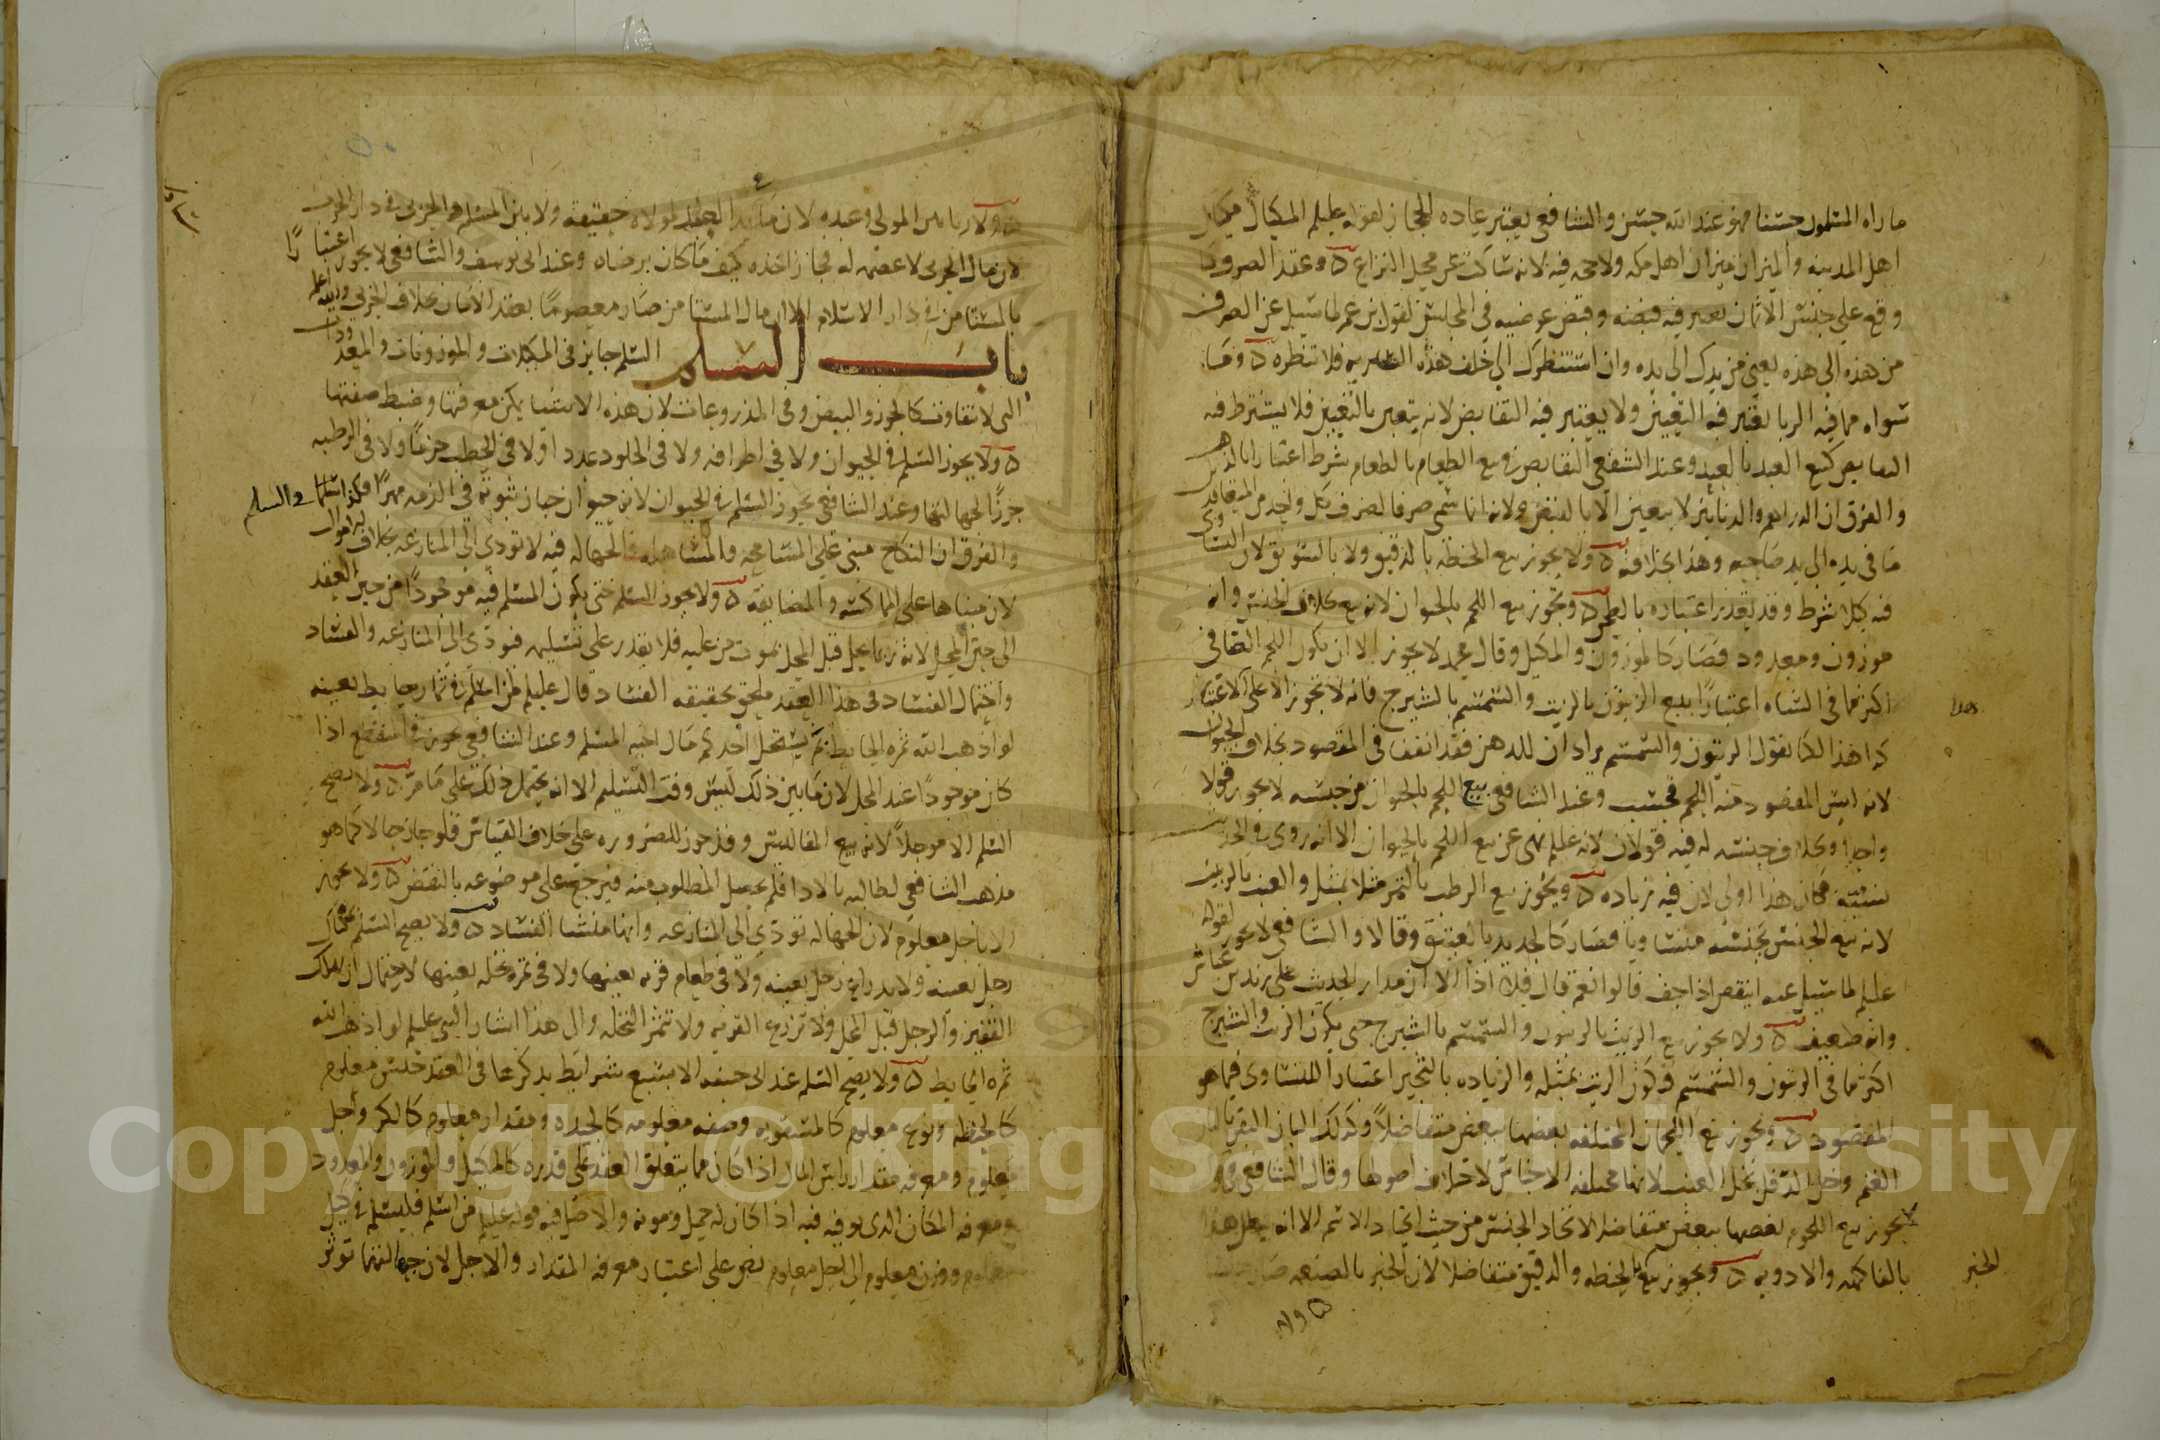 ما راه المسلمون حسنا فهو عند الله حسن والشافعي يعتبر عاده الحجاز لقوله عليلم المكيال مكيال
اهل المدينه والميزان ميزان اهل مكه ولا حجه فيه لانه ساكت عن محل النزاع ٥ وعقد الصرف ما
وقع علي جنس الاثمان يعتبر فيه قبضه وقبض عوضيه في المجلس لقول بن عمر لما سيل عن الصرف
من هذه الي هذه يعني من يدك الي يده وان استنظرك الي خلف هذه الساريه فلا تنظره ٥ وما
سواه مما فيه الربا يعتبر فيه التعيين ولا يعتبر فيه التقابض لانه يتعين بالتعيين فلا يشترط فيه
التقابض كبيع العبد بالعبد وعند الشفعي التقابض في بيع الطعام بالطعام شرط اعتبارا بالذهب
والفرق ان الدراهم والدنانير لا يتعين الا بالقبض ولانه انما سمي صرفا لصرف كل واحد من المتعاقدين
ما في يده الي يد صاحبه وهذا بخلافه ٥ ولا يجوز بيع الحنطه بالدقيق ولا بالسويق لان التساوي
فيه كيلا شرط وقد تعذر اعتباره بالطحن ٥ ويجوز بيع اللحم بالحيوان لانه بيع بخلاف الجنس وانه
موزون ومعدود فصار كالموزون والمكيل وقال محمد لا يجوز الا ان يكون اللحم الصافي
اكثر مما في الشاه اعتبارا ببيع الزيتون بالزيت والسمسم بالشيرج فانه لا يجوز الا علي الاعتبار
كذا هذا الا انا نقول الزيتون والسمسم يرادان للدهن فقد اتفقا في المقصود بخلاف الحيوان
لانه ليس المقصود منه اللحم فحسب وعند الشافعي بيع اللحم بالحيوان من جنسه لا يجوز قولا
واحدا وبخلاف جنسه له فيه قولان لانه عليلم نهى عن بيع اللحم بالحيوان الا انه روي في الحديث
نسيئه فكان هذا اولى لان فيه زياده ٥ ويجوز بيع الرطب بالتمر مثلا بمثل والعنب بالزبيب
لانه بيع الجنس بجنسه متساويا فصار كالجديد بالعتيق وقالا والشافعي لا يجوز لقوله
عليلم لما سيل عنه اينقص اذا جف قالوا نعم قال فلا اذا الا ان مدار الحديث علي زيد بن عياش
وانه ضعيف ٥ ولا يجوز بيع الزيت بالزيتون والسمسم بالشيرج حتى يكون الزيت والشيرج
اكثر مما في الزيتون والسمسم فيكون الزيت بمثله والزياده بالثجير اعتبارا للتساوي فيما هو
المقصود ٥ ويجوز بيع اللحمان المختلفه بعضها ببعض متفاضلا وكذلك البان البقر بالبان
الغنم وخل الدقل بخل العنب لانها مختلفه الاجناس لاختلاف اصولها وقال الشافعي في قول
لا يجوز بيع اللحوم بعضها ببعض متفاضلا لاتحاد الجنس من حيث اتحاد الاسم الا انه يبطل هذا
بالفاكهه والادويه ٥ ويجوز بيع الحنطه والدقيق متفاضلا لان الخبز بالصنعه صار
الخبز
٥ ولا ربا بين المولى وعبده لان ما بيد العبد لمولاه حقيقه ولا بين المسلم والحربي في دار الحرب
لان مال الحربي لا عصمه له فجاز اخذه كيف ما كان برضاه وعند ابي يوسف والشافعي لا يجوز اعتبارا
بالمستامن في دار الاسلام الا ان مال المستامن صار معصوما بعقد الامان بخلاف الحربي والله اعلم
باب السلم السلم جايز في المكيلات والموزونات والمعدودات
التي لا تتفاوت كالجوز والبيض وفي المذروعات لان هذه الاشيا يمكن معرفتها وضبط صفتها
٥ ولا يجوز السلم في الحيوان ولا في اطرافه ولا في الجلود عددا ولا في الحطب حزما ولا في الرطبه
جرزا لجهالتها وعند الشافعي يجوز السلم في الحيوان لانه حيوان جاز ثبوته في الذمه مهرا فكذا سلما في السلم
والفرق ان النكاح مبني علي المسامحه والمساهله فالجهاله فيه لا تودي الي المنازعه بخلاف الاموال
لان مبناها على المماكسه والمضايقه ٥ ولا يجوز السلم حتى يكون المسلم فيه موجودا من حين العقد
الى حين المحل لانه ربما يحل قبل المحل بموت من عليه فلا يقدر على تسليمه فيودي الى المنازعه والفساد
واحتمال الفساد في هذا العقد ملحق بحقيقه الفساد قال عليلم لمن اسلم في ثمار حايط بعينه
لو اذهب الله ثمره الحايط بم يستحل احدكم مال اخيه المسلم وعند الشافعي يجوز في المنقطع اذا
كان موجودا عند المحل لان ما بين ذلك ليس وقت التسليم الا انه يحتمل ذلك علي ما مر ٥ ولا يصح
السلم الا موجلا لانه بيع المفاليس وقد جوز للضروره على خلاف القياس فلو جاز حالا كما هو
مذهب الشافعي لطالبه بالاداء فلم يحصل المطلوب منه فيرجع على موضوعه بالنقض ٥ ولا يجوز
الا باجل معلوم لان الجهاله تودي الى المنازعه وانها منشا الفساد ٥ ولا يصح السلم بمكيال
رجل بعينه ولا بذراع رجل بعينه ولا في طعام قريه بعينها ولا في ثمره نخله بعينها لاحتمال ان يهلك
القفيز والرجل قبل المحل ولا تزرع القريه ولا تثمر النخله والى هذا اشار النبي عليلم لو اذهب الله
ثمره الحايط ٥ ولا يصح السلم عند ابي حنيفه الا بسبع شرايط يذكرها في العقد جنس معلوم
كالحنطه ونوع معلوم كالسقويه وصفه معلومه كالجيده ومقدار معلوم كالكر واجل
معلوم ومعرفه مقدار راس المال اذا كان مما يتعلق العقد على قدره كالمكيل والموزون والمعدود
ومعرفه المكان الذي يوفيه فيه اذا كان له حمل ومونه والاصل فيه قوله عليلم من اسلم فليسلم في كيل
معلوم ووزن معلوم الى اجل معلوم نص على اعتبار معرفه المقدار والاجل لان جهالتهما توثر
Copyright © King Saud University